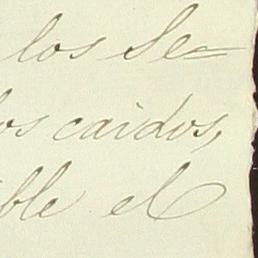 los Se=
los caidos,
ible el